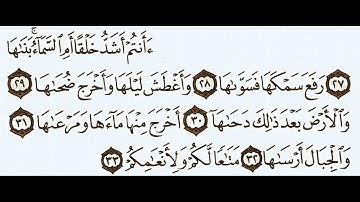 ءَأَنتُمْ أَشَدُّ خَلْقًا أَمِ ٱلسَّمَآءُ ۚ بَنَىٰهَا
﴿٢٧﴾ رَفَعَ سَمْكَهَا فَسَوَّىٰهَا ﴿٢٨﴾ وَأَغْطَشَ لَيْلَهَا وَأَخْرَجَ ضُحَىٰهَا ﴿٢٩﴾
وَٱلْأَرْضَ بَعْدَ ذَٰلِكَ دَحَىٰهَآ ﴿٣٠﴾ أَخْرَجَ مِنْهَا مَآءَهَا وَمَرْعَىٰهَا ﴿٣١﴾
وَٱلْجِبَالَ أَرْسَىٰهَا ﴿٣٢﴾ مَتَـٰعًا لَّكُمْ وَلِأَنْعَـٰمِكُمْ ﴿٣٣﴾